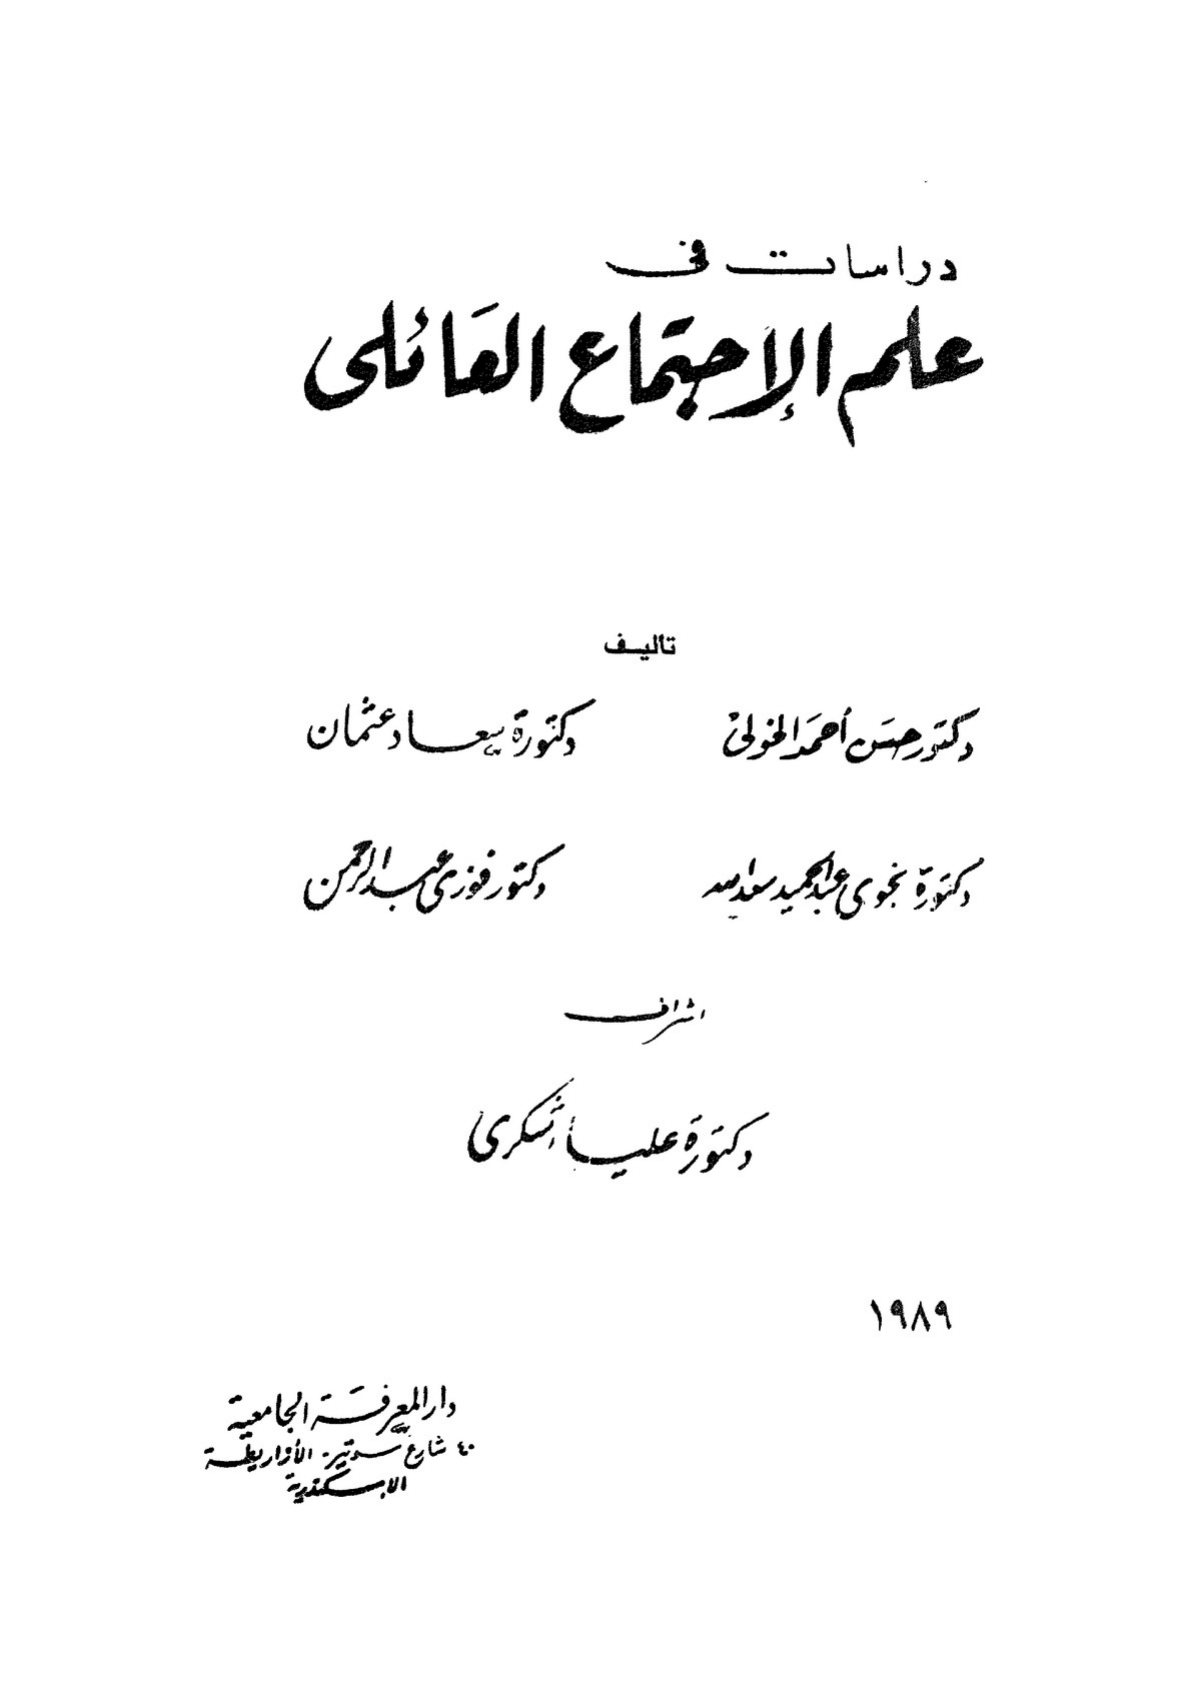 دراسات فى
علم الإجتماع العائلى
تأليف
دكتور حسن أحمد الخولى دكتورة سعاد عثمان
دكتورة نجوى عبد الحميد سعد الله دكتور فوزى عبد الرحمن
اشراف
دكتورة علياء شكرى
١٩٨٩
دار المعرفة الجامعية
٤٠ شارع سوتير - الأزاريطة
الاسكندرية